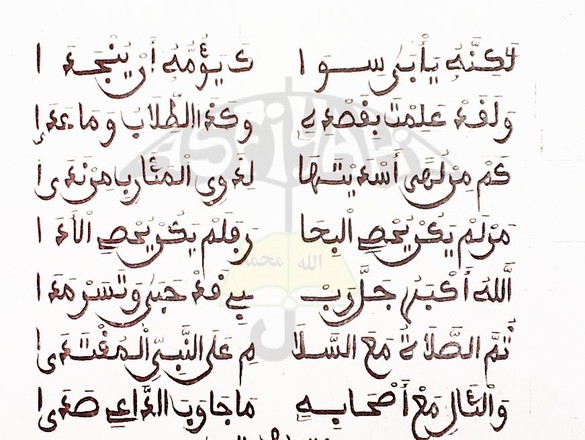 لَكِنَّهُ يَأْبَى سِوَا كَ يَؤُمُّهُ أَنْ يُنْجِدَا
وَلَقَدْ عَلِمْتَ بِقَصْدِهِ وَكَذَا الطُّلَّابُ وَمَا عَدَا
كَمْ مِنْ لُهًى أَسْدَيْتَهَا لِذَوِي الْمَئَارِبِ مِنْ نَدَى
مَنْ لَمْ يَكُنْ يُحْصِي الْبِحَا رَ فَلَمْ يَكُنْ يُحْصِي
اللَّهُ أَكْبَرُ جَلَّ رَبِّ ي قَدْ حَبَى وَتَسَرْمَدَا
ثُمَّ الصَّلَاةُ مَعَ السَّلَا مِ عَلَى النَّبِيِّ الْمُقْتَدَى
وَالْئَالِ مَعْ أَصْحَابِهِ مَا جَاوَبَ الدَّاعِي صَدَى